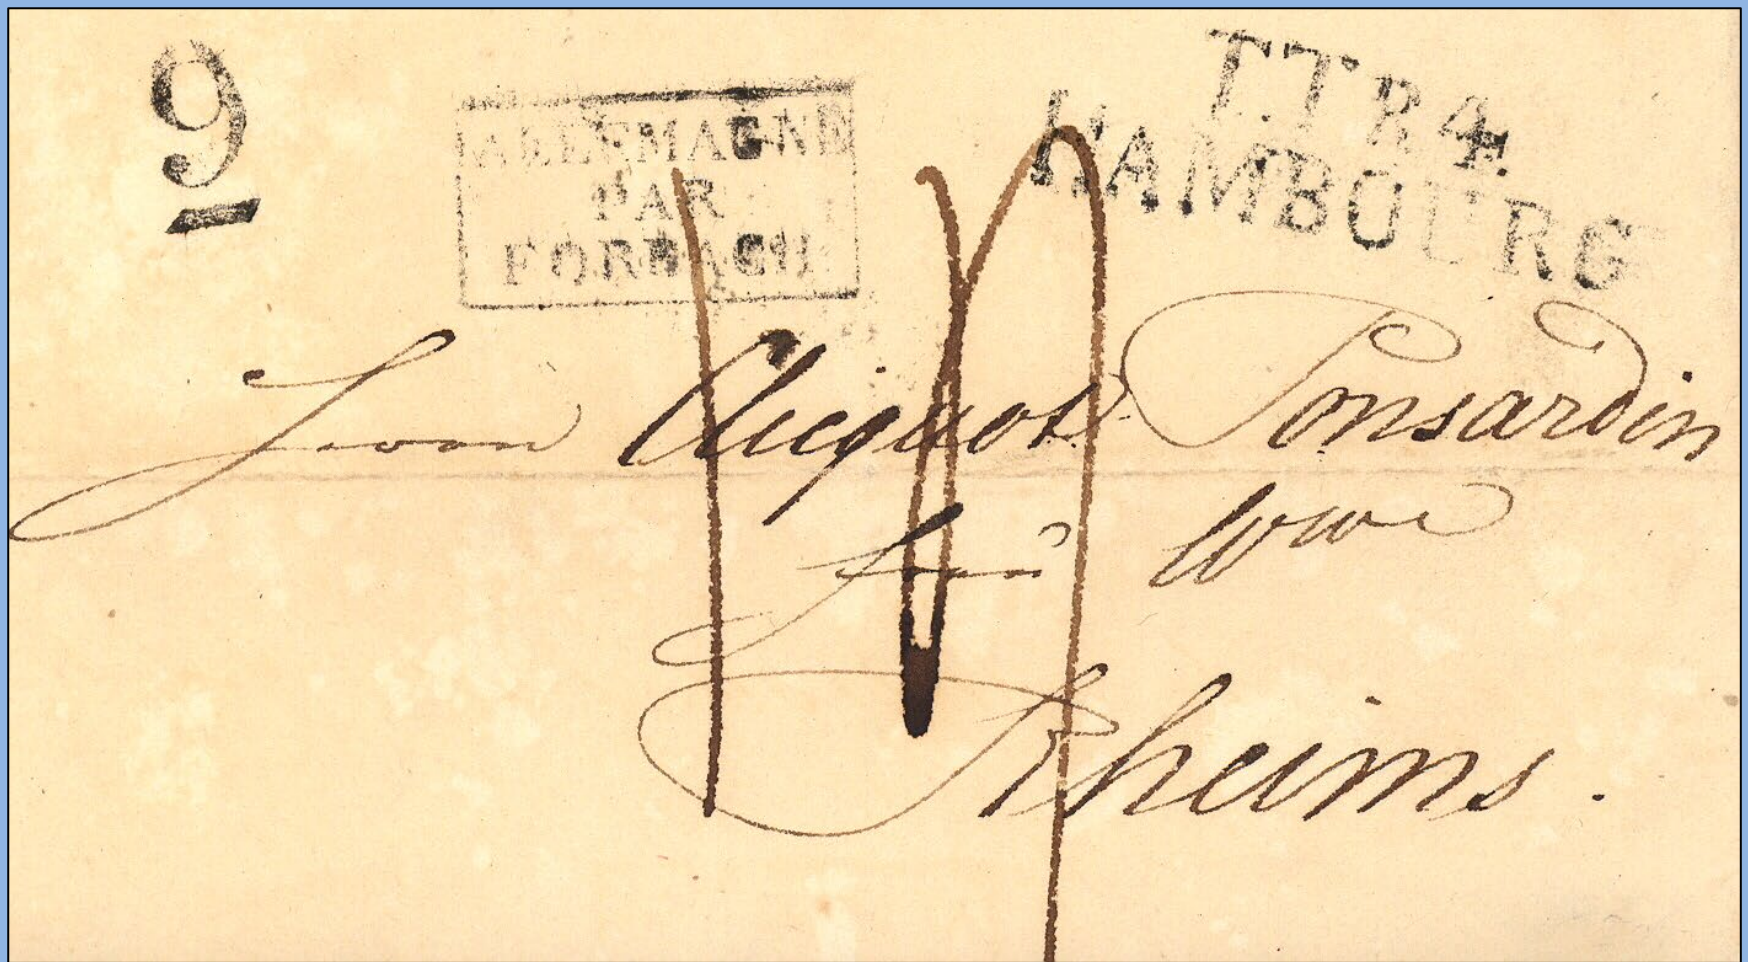 9
ALLEMAGNE
PAR
FORBACH
T.T.R.4.
HAMBOURG
Clicquot Ponsardin
Rheims.